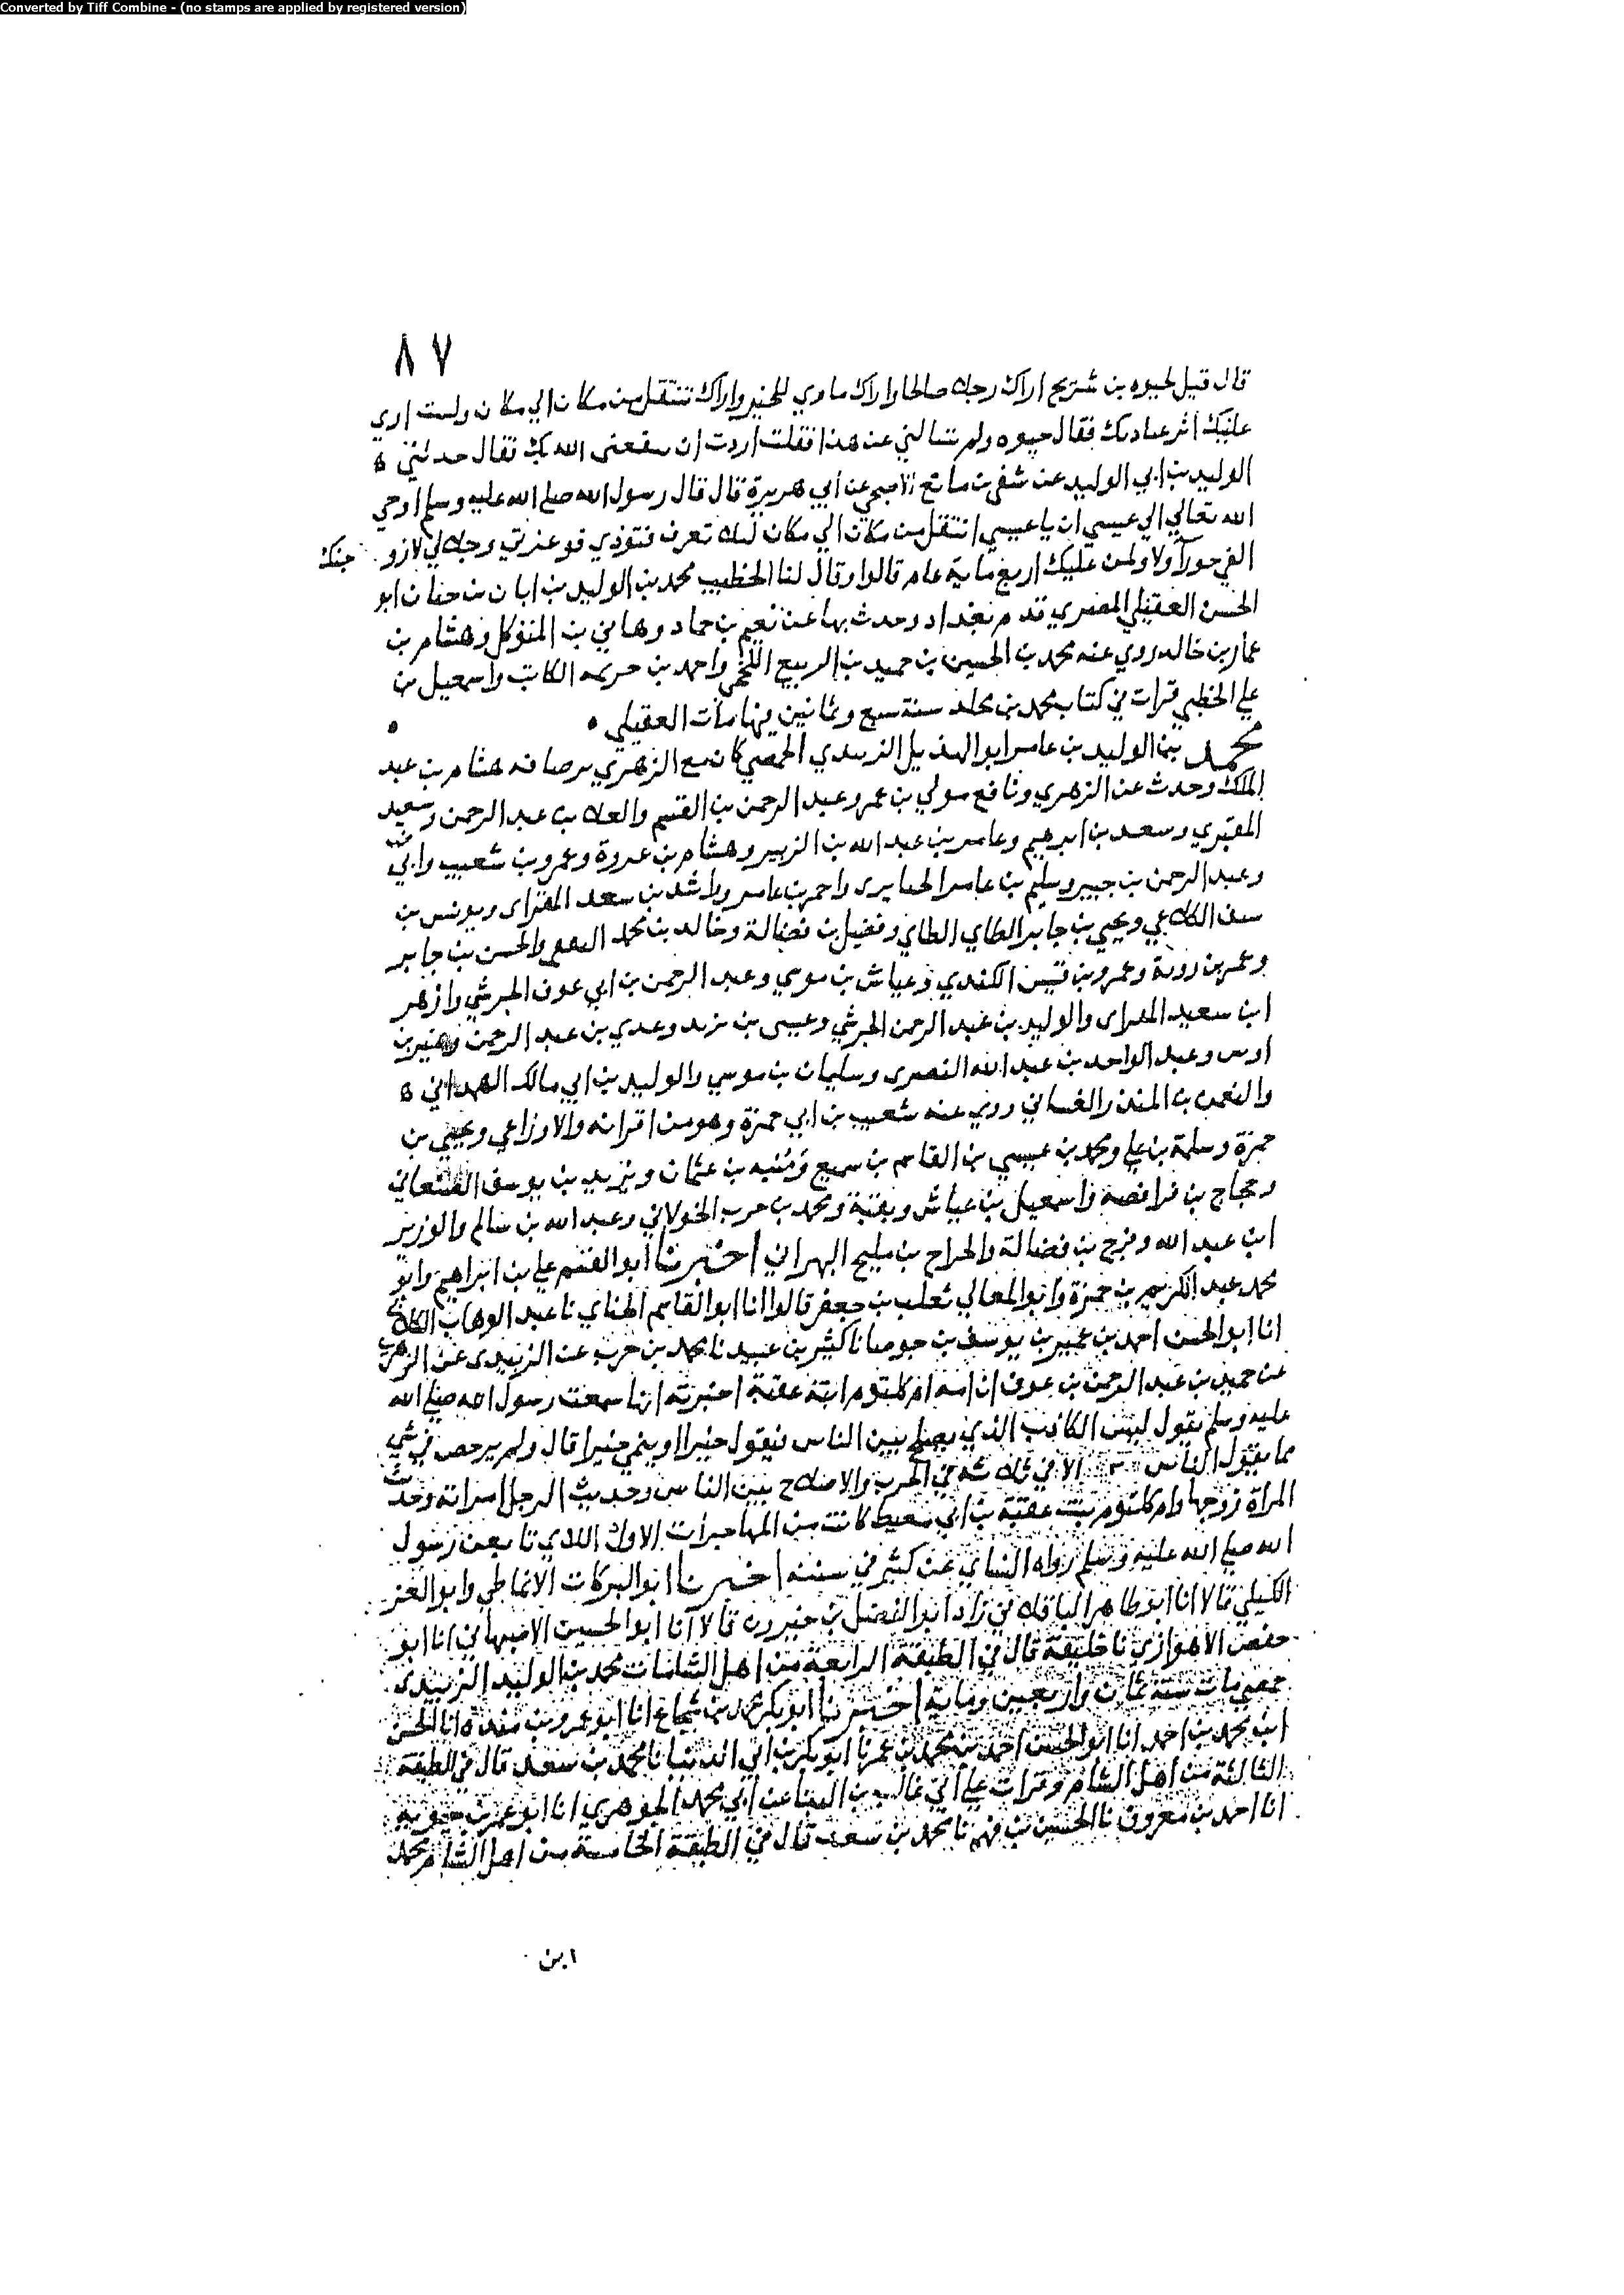 Converted by Tiff Combine - (no stamps are applied by registered version)
٨٧
قال قيل لحيوه بن شريح اراك رجلا صالحا واراك ماوي للخير واراك تنتقل من مكان الي مكان ولست اري
عليك اثر عبادتك فقال حيوه ولم تسالني عن هذا فقلت اردت ان ينفعنى الله بك فقال حدثني ه
الوليد بن ابي الوليد عن شفي بن ماتع الاصبحي عن ابي هريرة قال قال رسول الله صلي الله عليه وسلم اوحي
الله تعالي الي عيسي ان يا عيسي انتقل من مكان الي مكان لئلا تعرف فتوذي فوعزتي وجلالي لازوجنك
الفي حورآ ولاولمن عليك اربع ماية عام قالوا وقال لنا الخطيب محمد بن الوليد بن ابان بن حبان ابو
الحسن العقيلي المصري قدم بغداد وحدث بها عن نعيم بن حماد وهاني بن المتوكل وهشام بن
عمار بن خالد روي عنه محمد بن الحسين بن حميد بن الربيع اللخمي واحمد بن خزيمه الكاتب واسمعيل بن
علي الخطبي قرات في كتاب محمد بن مخلد سنة سبع وثمانين فيها مات العقيلي ه ه
محمد بن الوليد بن عامر ابو الهذيل الزبيدي الحمصي كان مع الزهري برصافه هشام بن عبد
الملك وحدث عن الزهري ونافع مولي بن عمر وعبد الرحمن بن القسم والعلا بن عبد الرحمن وسعيد
المقبري وسعد بن ابرهيم وعامر بن عبد الله بن الزبير وهشام بن عروة وعمرو بن شعيب وابي
وعبد الرحمن بن جبير وسليم بن عامر الخبايرى واحمر بن عامر وراشد بن سعد المقراى ويونس بن
سيف الكلاعي ويحيي بن جابر الطاي الطاي وفضيل بن فضالة وخالد بن محمد والحسن بن جابر
وعمر بن روبة وعمرو بن قيس الكندي وعياش بن موسي وعبد الرحمن بن ابي عوف الجرشي وازهر
ابن سعيد والوليد بن عبد الرحمن الجرشي وعيسى بن يزيد وعدي بن عبد الرحمن وعمير بن
اوس وعبد الواحد بن عبد الله النصرى وسليمان بن موسي والوليد بن ابي مالك الهمداني ه
والنعمن بن المنذر الغساني روي عنه شعيب بن ابي حمزة وهو من اقرانه والاوزاعي ويحيي بن
حمزة وسلمة بن علي ومحمد بن عيسي بن القاسم بن سميع ومنبه بن عثمان ويزيد بن يوسف الصنعاني
وحجاج بن فرافصة واسمعيل بن عياش وبقية ومحمد بن حرب الخولاني وعبد الله بن سالم والوزير
ابن عبد الله وفرج بن فضالة والجراح بن مليح البهراني اخبرنا ابو القسم علي بن ابراهيم وابو
محمد عبد الكريم بن حمزة وابو المعالي ثعلب بن جعفر قالوا انا ابو القاسم الحناي نا عبد الوهاب الكلابي
انا ابو الحسن احمد بن عمير بن يوسف بن جوصا نا كثير بن عبيد نا محمد بن حرب عن الزبيدى عن الزهري
عن حميد بن عبد الرحمن بن عوف ان امه ام كلثوم ابنة عقبة اخبرته انها سمعت رسول الله صلي الله
عليه وسلم يقول ليس الكاذب الذي يصلح بين الناس فيقول خيرا او ينمي خيرا قال ولم يرخص في شي
مما يقول الناس الا في ثلاثه في الحرب والاصلاح بين الناس وحديث الرجل امراته وحديث
المراة زوجها وام كلثوم بنت عقبة بن ابي معيط كانت من المهاجرات الاول اللاي بايعن رسول
الله صلي الله عليه وسلم رواه النساي عن كثير في سننه اخبرنا ابو البركات الانماطي وابو العز
الكيلي قالا انا ابو طاهر الباقلاني زاد ابو الفضل بن خيرون قالا انا ابو الحسين الاصبهاني انا ابو
حفص الاهوازي نا خليفة قال في الطبقة الرابعة من اهل الشامات محمد بن الوليد الزبيدى
حمصي مات سنة ثمان واربعين وماية اخبرنا ابو بكر محمد بن شجاع انا ابو عمرو بن منده انا الحسن
ابن محمد بن احمد انا ابو الحسن احمد بن محمد بن عمر نا ابو بكر بن ابي الدنيا نا محمد بن سعد قال في الطبقة
الثالثة من اهل الشام وقرات علي ابي غالب بن البنا عن ابي محمد الجوهري انا ابو عمر بن حيويه
انا احمد بن معروف نا الحسين بن فهم نا محمد بن سعد قال في الطبقة الخامسة من اهل الشام محمد
ابن